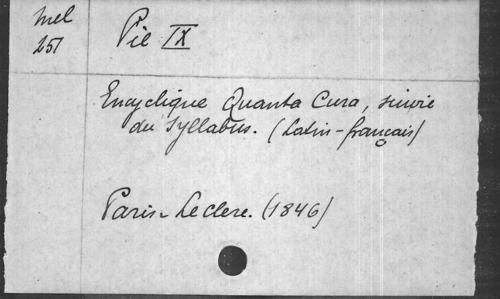 mel
257
Pie IX
Encyclique Quanta Cura, suivie
du Syllabus. (Latin-français)
Paris - Leclere. (1846)